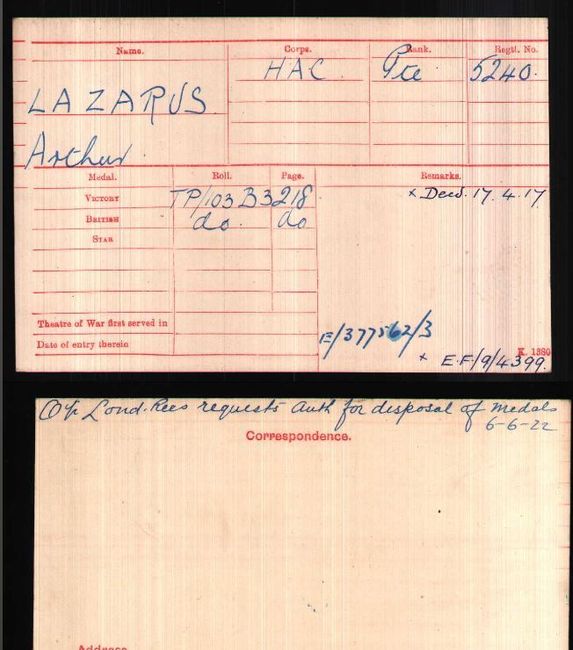 Name. Corps. Rank. Regtl. No.
HAC. Pte 5240.
LAZARUS
Arthur.
Medal. Roll. Page. Remarks.
VICTORY TP/103 B 3218 × Decd. 17.4.17
BRITISH do. do
STAR
Theatre of War first served in
E/377562/3
Date of entry therein
× E.F/9/4399.
K. 1380
O i/c Lond. Recs requests auth for disposal of medals
6-6-22
Correspondence.
Address